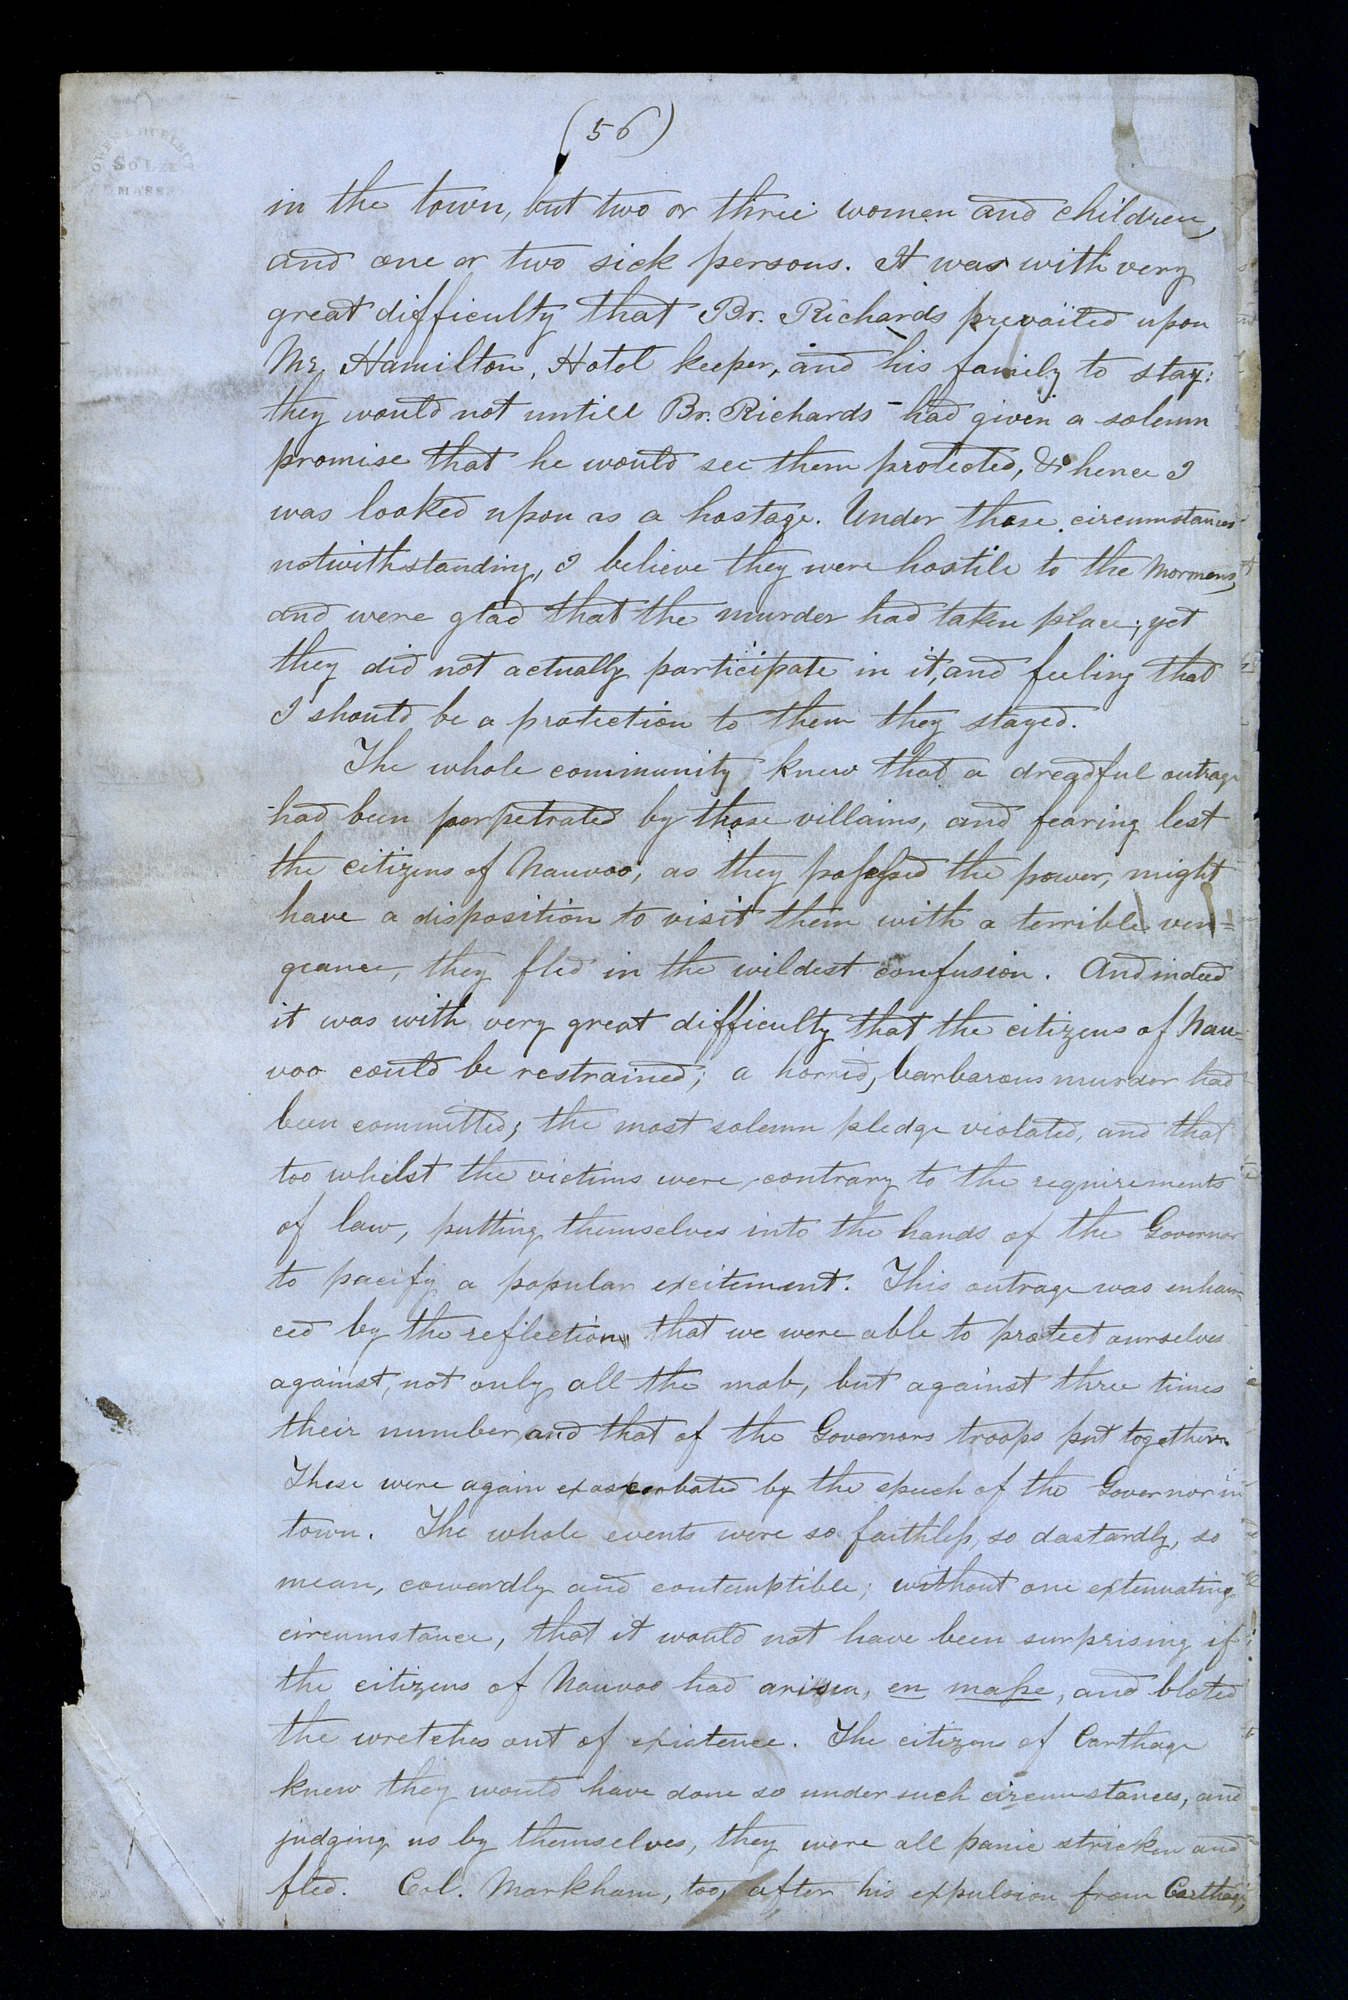 (56)
in the town, but two or three women and children,
and one or two sick persons. It was with very
great difficulty that Br. Richards prevailed upon
Mr. Hamilton, Hotel keeper, and his family to stay;
they would not untill Br. Richards had given a solemn
promise that he would see them protected, & hence I
was looked upon as a hostage. Under those circumstances
notwithstanding, I believe they were hostile to the Mormons,
and were glad that the murder had taken place; yet
they did not actually participate in it, and feeling that
I should be a protection to them they stayed.
The whole community knew that a dreadful outrage
had been perpetrated by those villains, and fearing lest
the citizens of Nauvoo, as they possessed the power, might
have a disposition to visit them with a terrible ven=
geance, they fled in the wildest confusion. And indeed
it was with very great difficulty that the citizens of Nau-
voo could be restrained; a horrid, barbarous murder had
been committed; the most solemn pledge violated, and that
too whilst the victims were, contrary to the requirements
of law, putting themselves into the hands of the Governor
to pacify a popular excitement. This outrage was enhan-
ced by the reflection that we were able to protect ourselves
against, not only all the mob, but against three times
their number, and that of the Governors troops put together.
These were again exascerbated by the speech of the Governor in
town. The whole events were so faithless, so dastardly, so
mean, cowardly and contemptible; without one extenuating
circumstance, that it would not have been surprising if
the citizens of Nauvoo had arisen, en masse, and bloted
the wretches out of existence. The citizens of Carthage
knew they would have done so under such circumstances, and
judging us by themselves, they were all panic stricken and
fled. Col. Markham, too, after his expulsion from Carthage,
SO LEE
MASS.